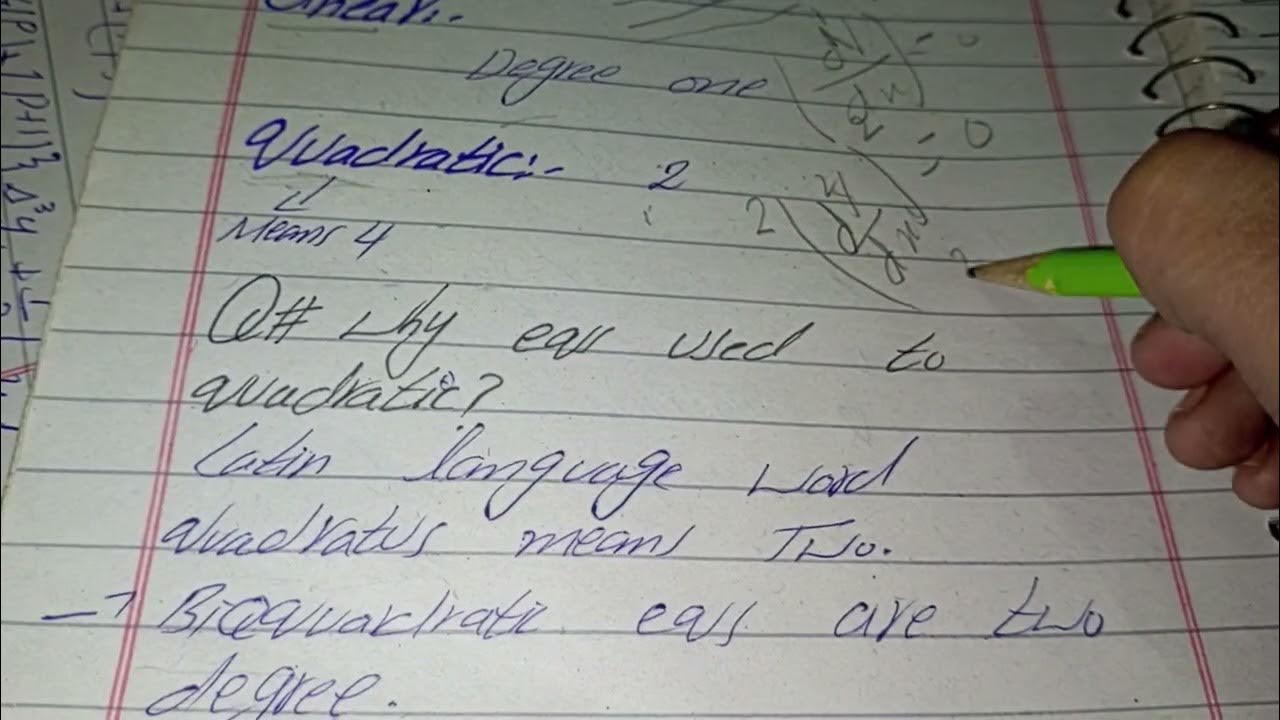 Linear:-
Degree one
Quadratic:- 2
Means 4
Q# Why eqs used to
quadratic?
Latin language word
quadratus means Two.
→ Biquadratic eqs are two
degree.